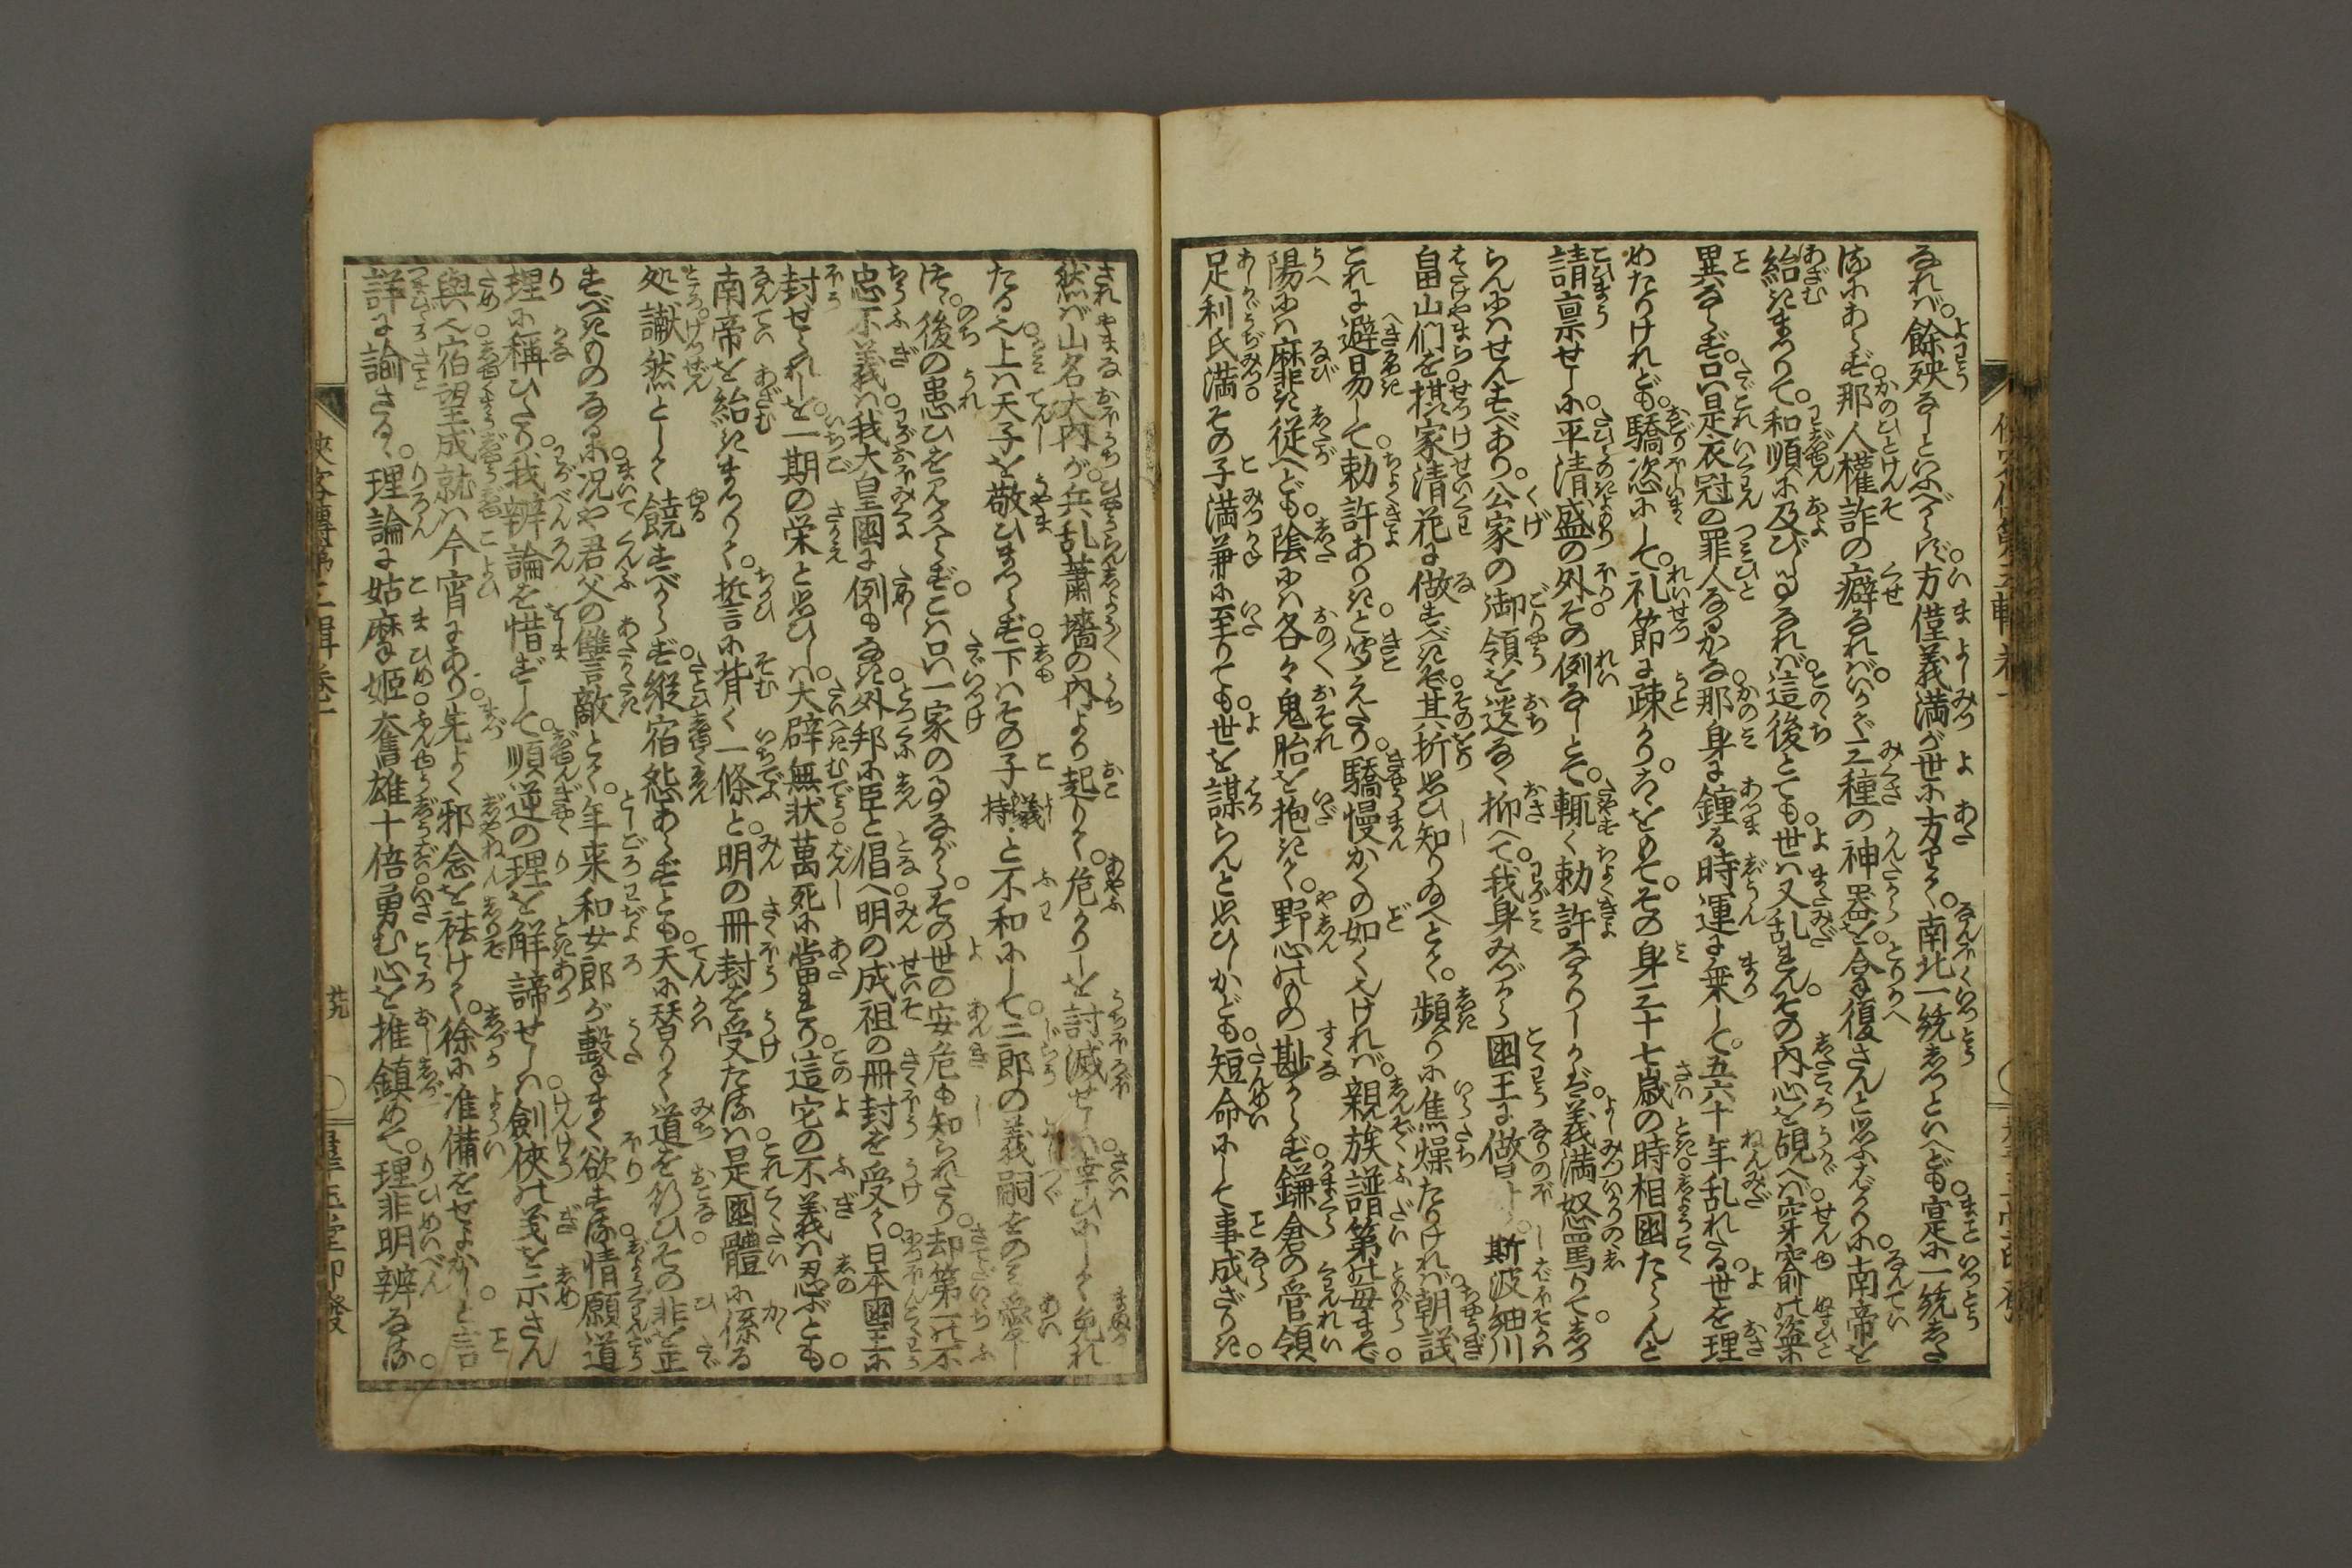 なれば。餘殃なしといふべからず。方僅義満が世に方りて。南北一統しつといへども。寔に一統した
るにあらず。那人權詐の癖なれば。いかで三種の神器を。合復さんと思ふばかりに。南帝を
紿きまつりて。和順に及びしかるれば。這後とても世は又乱れん。その内心を覘へば。穿窬の盗に
異ならず。只是衣冠の罪人なるかな。那身は鐘る時運に乗して。五六十年乱れたる。世を理
めたりけれども。驕恣にして。礼節に疎かりき。をもて。その身三十七歳の時。相國たらんと
請稟せしに。平清盛の外。その例なしとて。輒く勅許なかりしかば。義満怒罵りて。しか
らんにはせんすべあり。公家の御領を送なく抑へて。我身みづから國王に做りなん。斯波細川
畠山們を。摂家清花に做すべきぞ。其折思ひ知りねへとて。頻りに焦燥たりければ。朝議
これに避易して。勅許ありきと聞えたり。驕慢かくの如くなければ。親族譜第の毎まで。
陽には麻非き従へども。陰には各々鬼胎を抱きて。野心のもの尠からず。鎌倉の管領
足利氏満。その子満兼に至りても。世を謀らんと思ひしかども。短命にして事成ざりき。
然ば山名大内が。兵乱蕭墻の内より起りて。危かりしを討滅せしは。幸ひにして免れ
たるのみ。上は天子を敬ひまつらず。下はその子義持と不和にして。二郎の義嗣をのみ愛し
つ。後の患ひをかへらず。こは只一家の事ながら。その世の安危も知られたり。却第一の不
忠不義は。我大皇國に例もなき。外邦に臣と倡へ。明の成祖の冊封を受て。日本國王に
封ぜられしを。一期の栄と思ひしは。大辟無状。萬死に當れり。這它の不義は忍ぶとも。
南帝を紿きまつりて。誓言に背く一條と。明の冊封を受たるは。是國體に係る
処。讞然として饒すべからず。縦宿怨あらずとも。天に替りて道を行ひ。その非を正
すべきものなるに。况や君父の讐敵とて。年来和女郎が撃まく欲する。情願道
理に稱ひたり。我辨論を惜ずして。順逆の理を解諦せしは。劍侠の義を示さん
為。與へ宿望成就は今宵にあり。先よく邪念を袪けて。徐に准備をせよかし。と言
詳に諭さるゝ。理論に姑摩姫奮雄十倍。勇む心を推鎮めて。理非明辨なる
侠客傳第三輯巻一
廿九